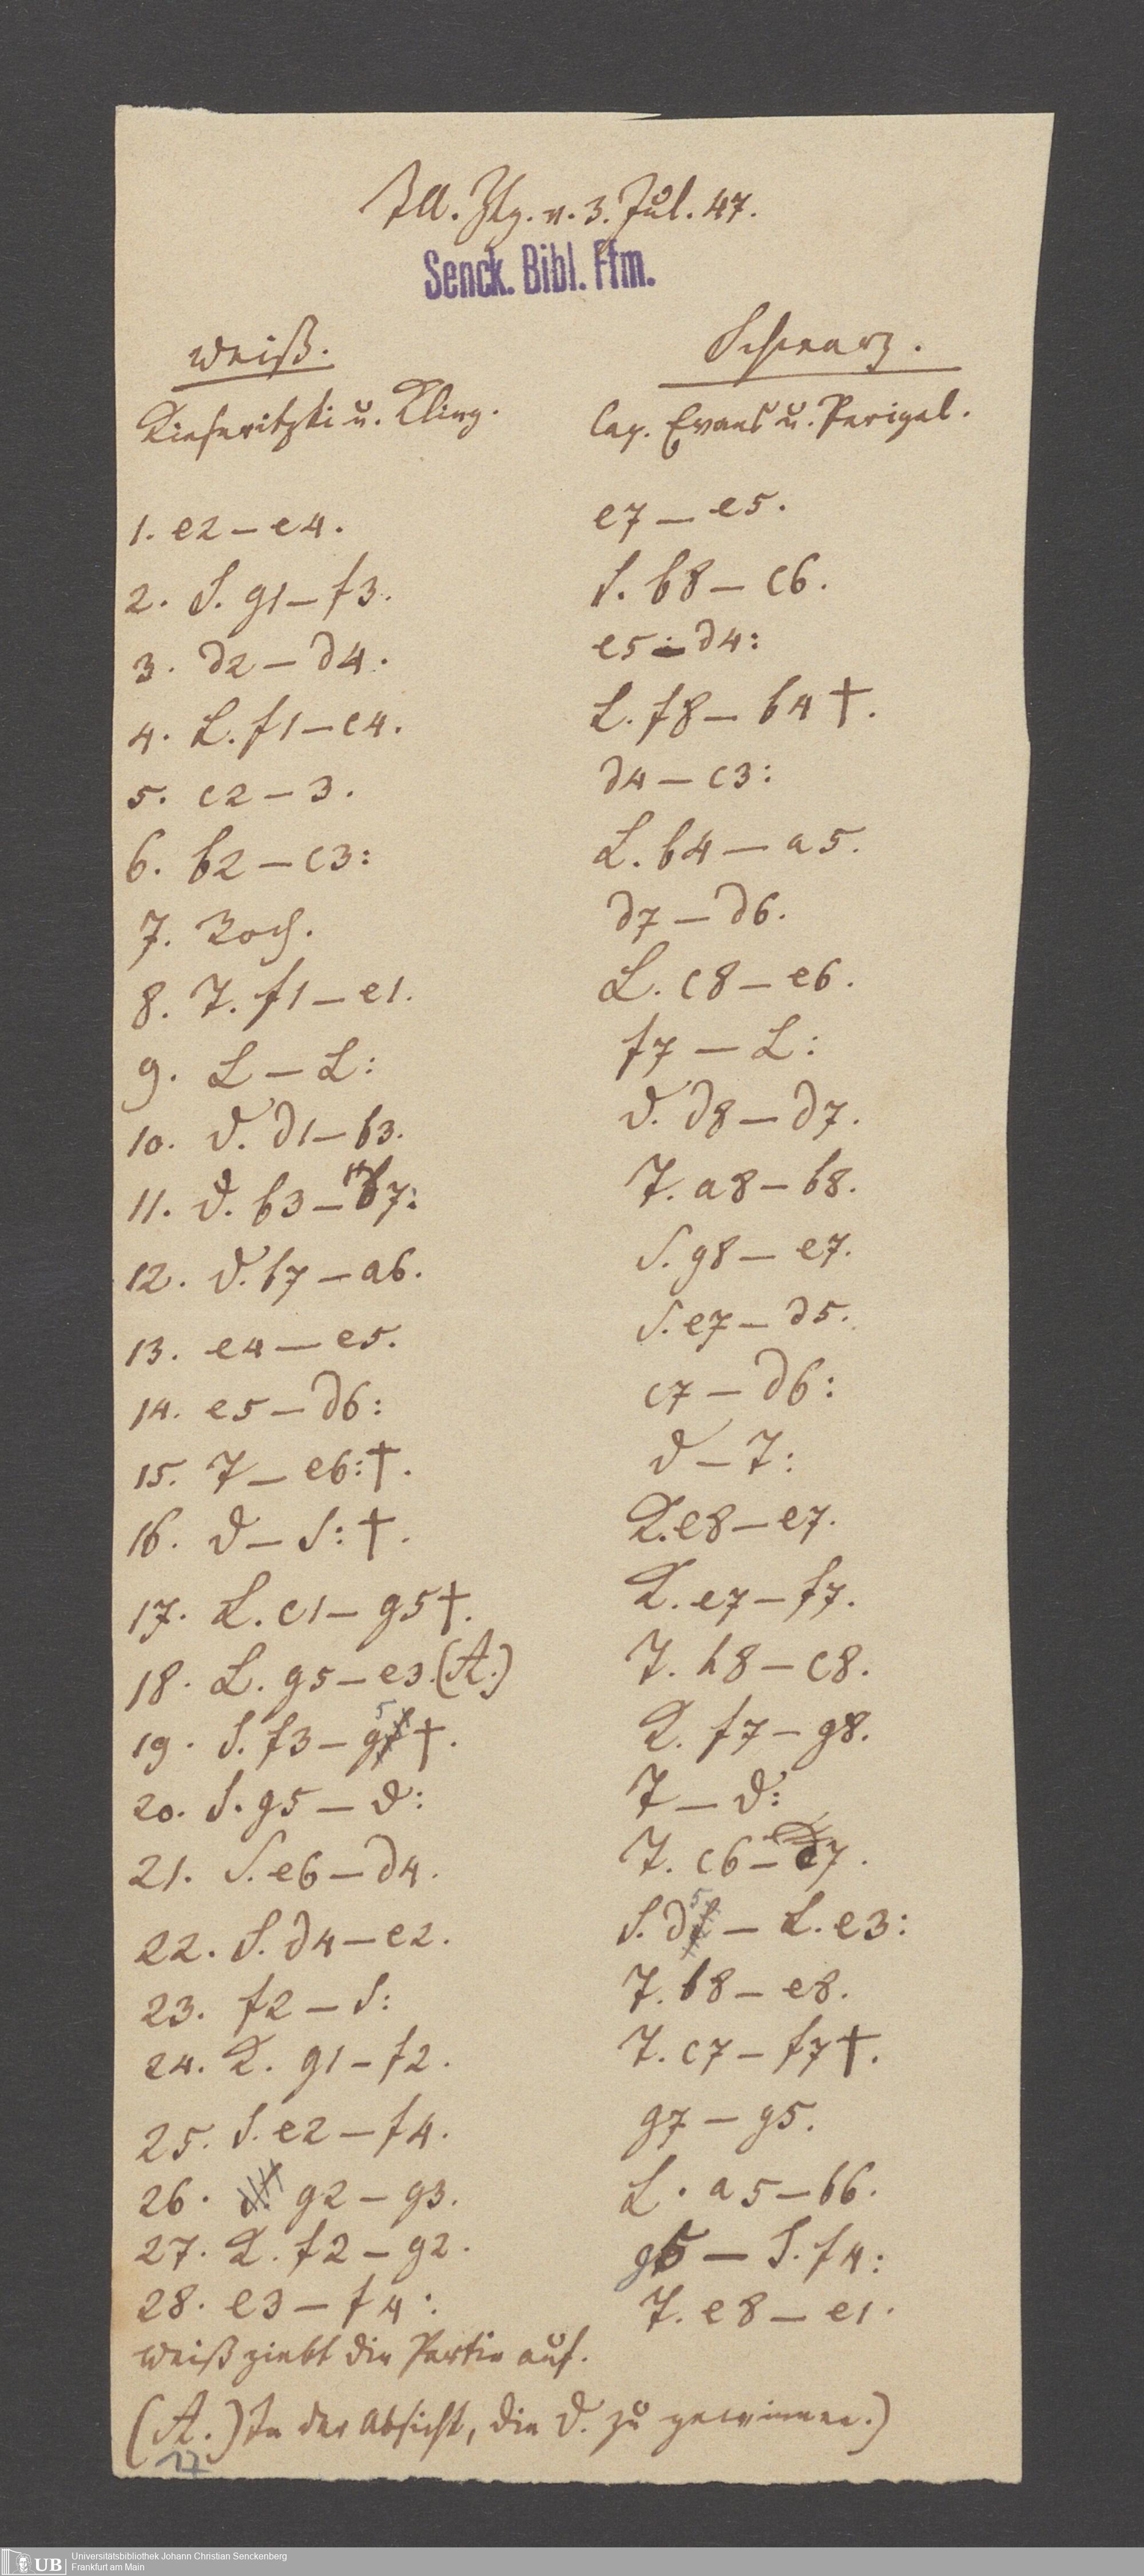 Ill. Ztg. v. 3. Jul. 47.
Senck. Bibl. Ffm.
Weiß. Schwarz.
Kieseritzki u. Kling. Cap. Evans u. Perigal.
1. e2 – e4. e7 – e5.
2. S. g1 – f3. S. b8 – c6.
3. d2 – d4. e5 – d4:
4. L. f1 – c4. L. f8 – b4 †.
5. c2 – 3. d4 – c3:
6. b2 – c3: L. b4 – a5.
7. Roch. d7 – d6.
8. T. f1 – e1. L. c8 – e6.
9. L – L: f7 – L:
10. D. d1 – b3. D. d8 – d7.
11. D. b3 – b7: T. a8 – b8.
12. D. b7 – a6. S. g8 – e7.
13. e4 – e5. S. e7 – d5.
14. e5 – d6: c7 – d6:
15. T – e6: †. D – T:
16. D – S: †. K. e8 – e7.
17. L. c1 – g5 †. K. e7 – f7.
18. L. g5 – e3. (A.) T. h8 – c8.
19. S. f3 – g5 †. K. f7 – g8.
20. S. g5 – D: T – D:
21. S. e6 – d4. T. c6 – c7.
22. S. d4 – e2. S. d5 – L. e3:
23. f2 – S: T. b8 – e8.
24. K. g1 – f2. T. c7 – f7 †.
25. S. e2 – f4. g7 – g5.
26. g2 – g3. L. a5 – b6.
27. K. f2 – g2. g5 – S. f4:
28. e3 – f4: T. e8 – e1.
Weiß giebt die Partie auf.
(A.) In der Absicht, die D. zu gewinnen.)
UB Universitätsbibliothek Johann Christian Senckenberg
Frankfurt am Main